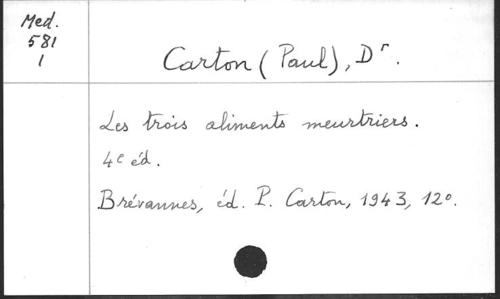 Med.
581
1
Carton (Paul), Dr.
Les trois aliments meurtriers.
4e éd.
Brévannes, éd. P. Carton, 1943, 12o.